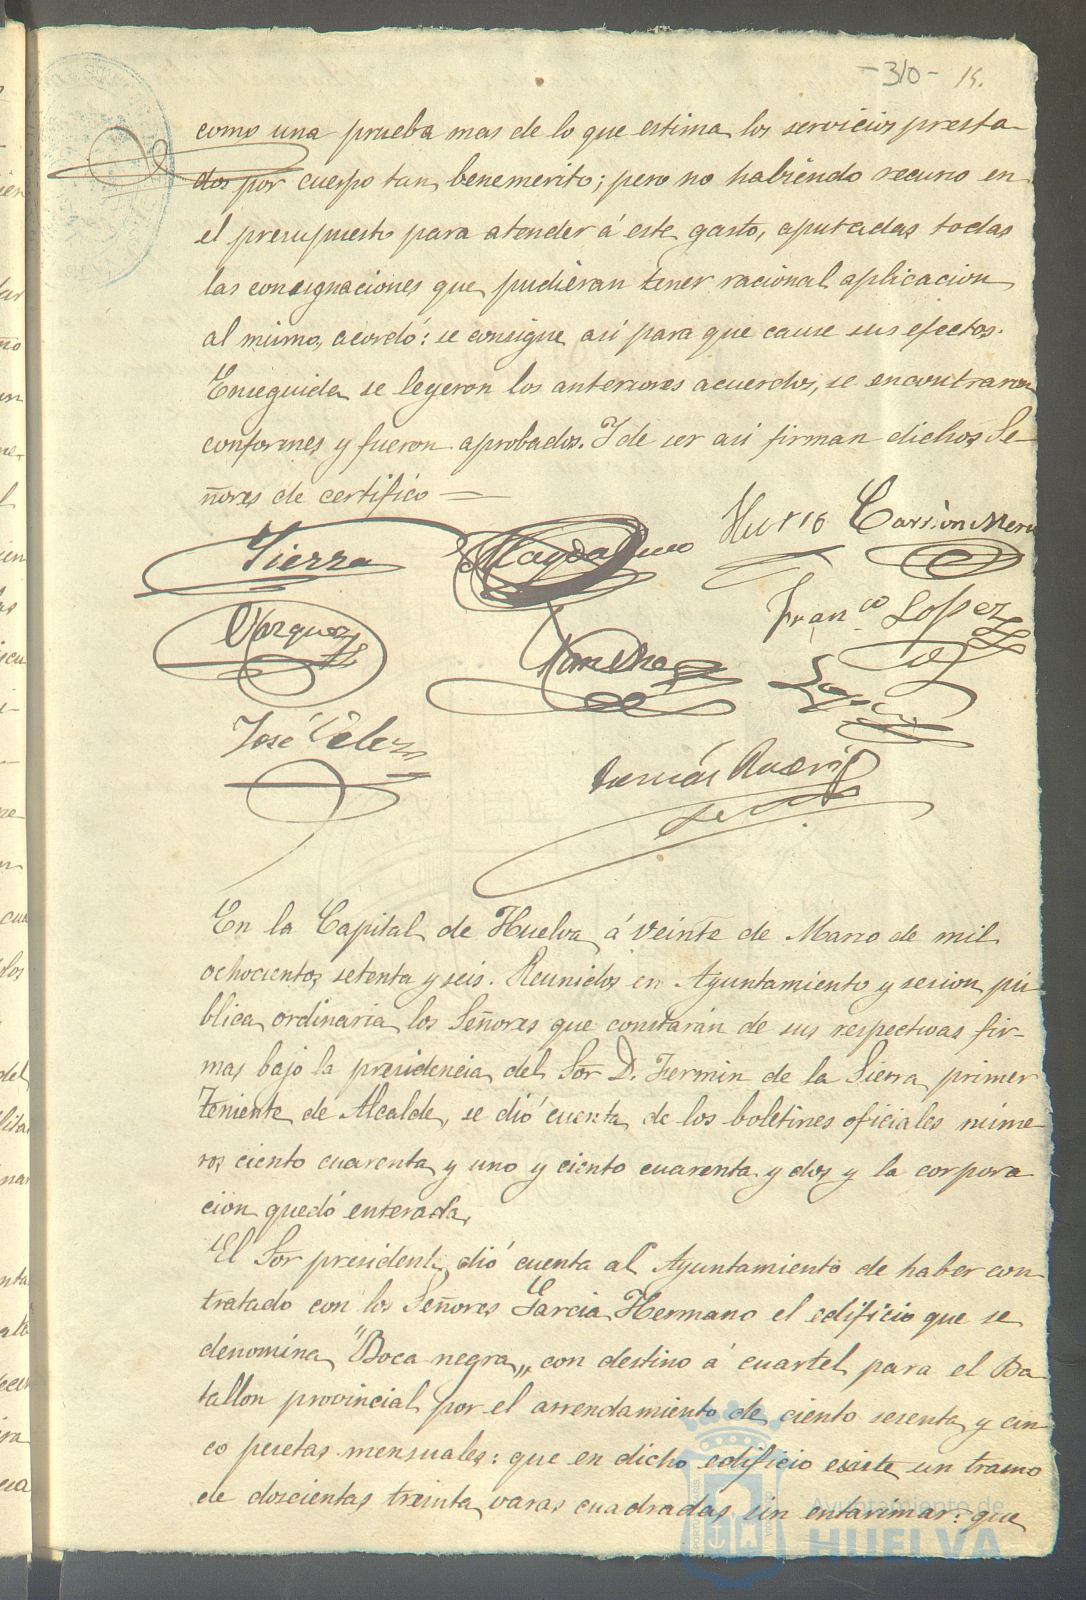 -310- 15.
como una prueba mas de lo que estima los servicios presta-
dos por cuerpo tan benemerito; pero no habiendo recurso en
el presupuesto para atender á este gasto, aputadas todas
las consignaciones que pudieran tener racional aplicacion
al mismo, acordó: se consigne asi para que cause sus efectos.
Enseguida se leyeron los anteriores acuerdos, se encontraron
conformes y fueron aprobados. Y de ser asi firman dichos Se-
ñores de certifico —
Sierra Magdaleno Carrion Mero
Vazquez Sanchez Franco Lopez
José Velez
En la Capital de Huelva á veinte de Marzo de mil
ochocientos setenta y seis. Reunidos en Ayuntamiento y sesion pú
blica ordinaria los Señores que constarán de sus respectivas fir-
mas bajo la presidencia del Sor D. Fermin de la Sierra primer
Teniente de Alcalde, se dió cuenta de los boletines oficiales núme
ros ciento cuarenta y uno y ciento cuarenta y dos y la corpora
cion quedó enterada.
El Sor presidente dió cuenta al Ayuntamiento de haber con
tratado con los Señores Garcia Hermano el edificio que se
denomina "Boca negra„ con destino á cuartel para el Ba
tallon provincial por el arrendamiento de ciento sesenta y cin
co pesetas mensuales: que en dicho edificio existe un tramo
de doscientas treinta varas cuadradas sin entarimar: que
Ayuntamiento de
HUELVA